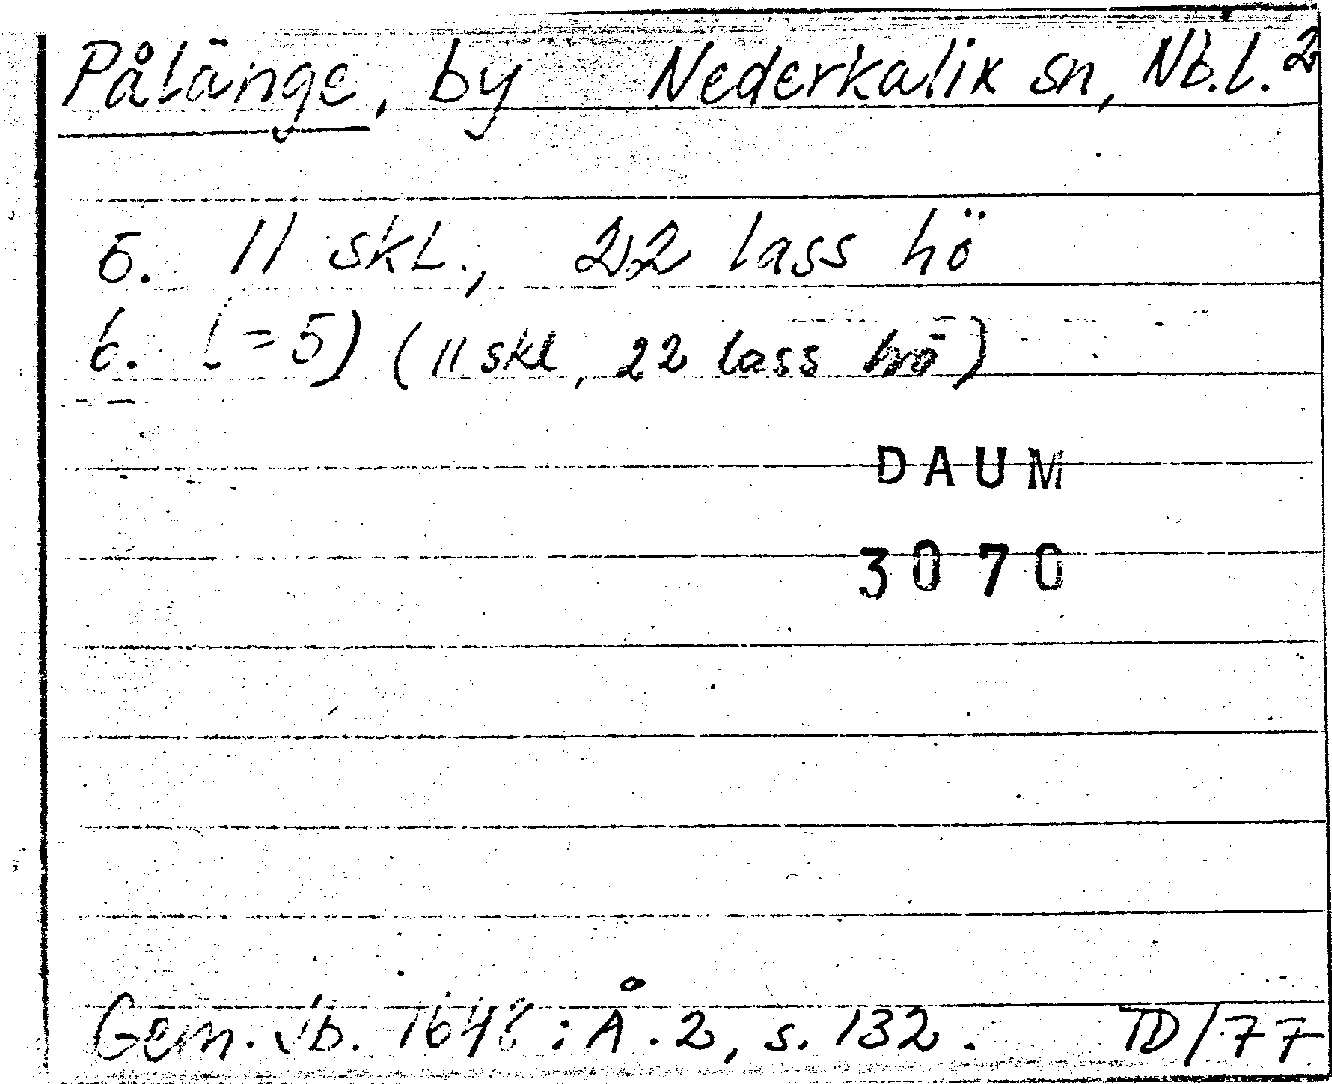 Pålänge, by Nederkalix sn, Nb.l. 2
5. 11 skl., 22 lass hö
6. (=5) (11 skl, 22 lass hö)
DAUM
3070
Gem. Jb. 1648: Å. 2, s. 132. TD/77